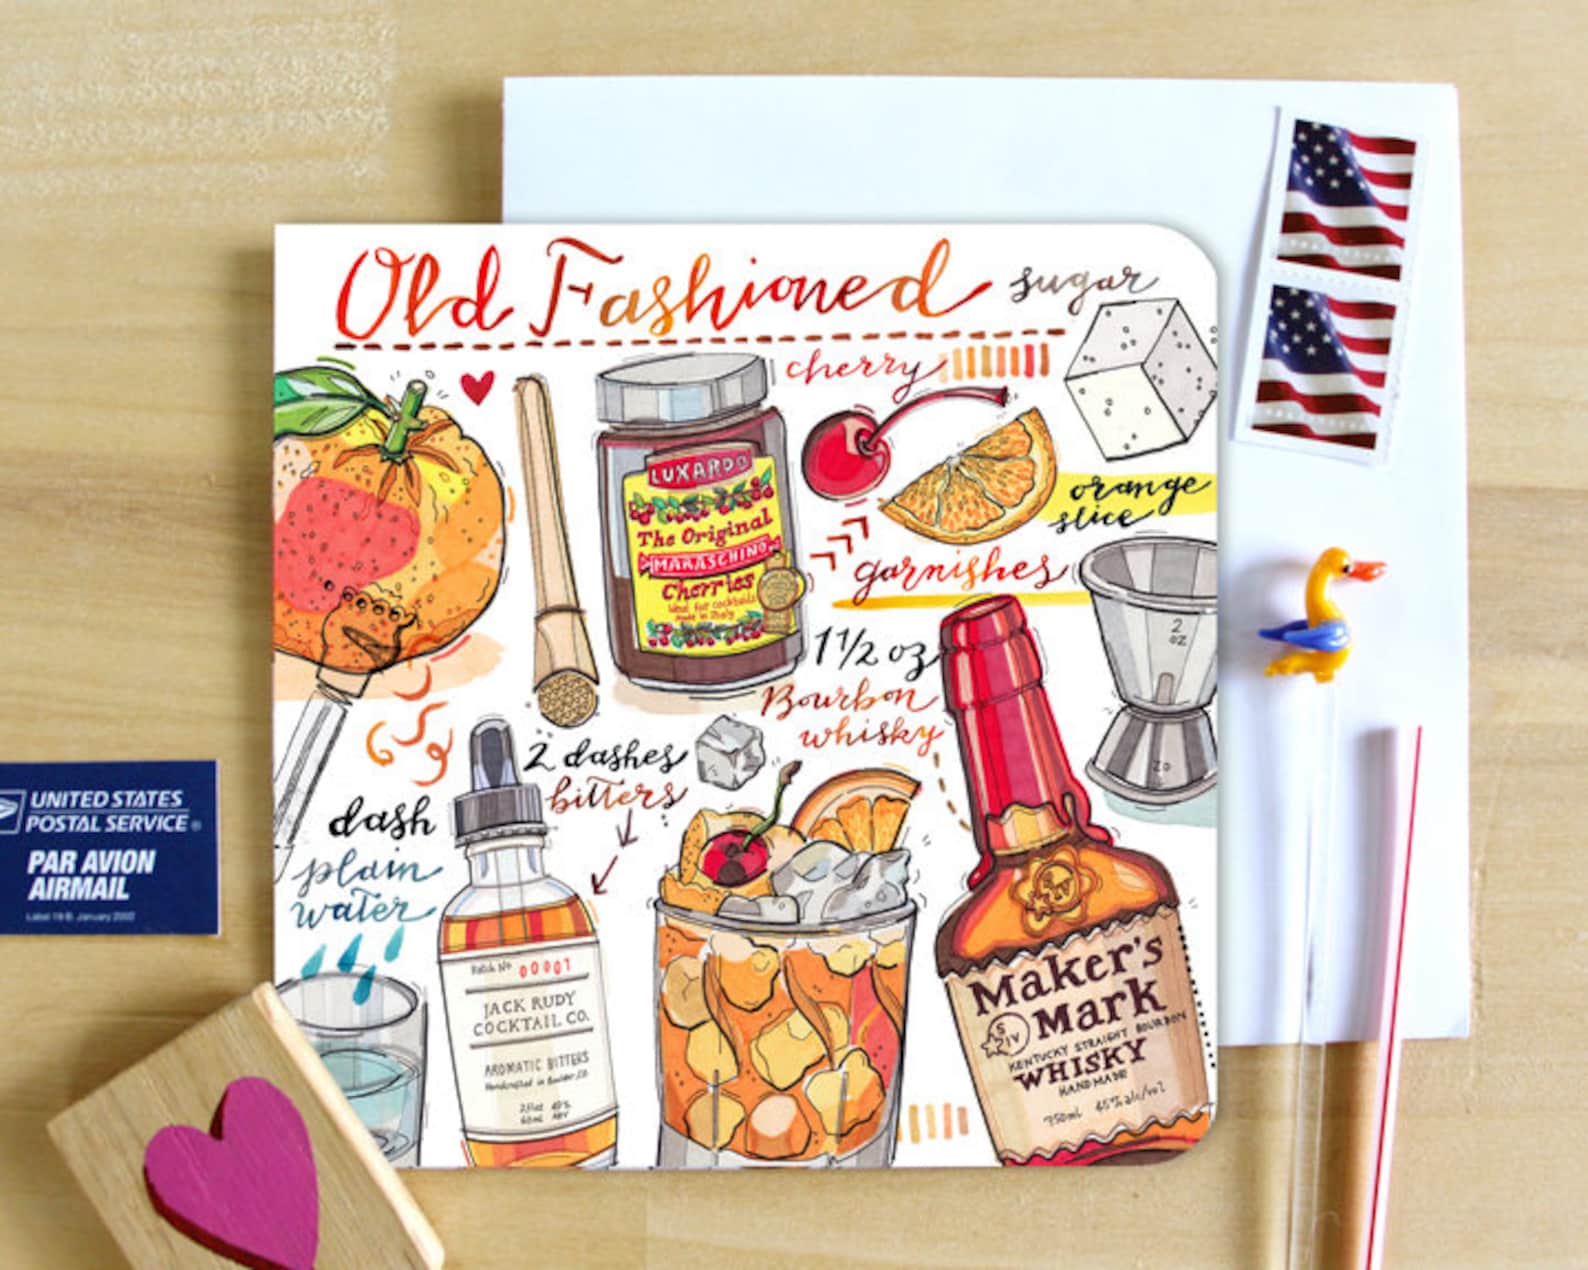 Old Fashioned
sugar
cherry
LUXARDO
The Original
MARASCHINO
Cherries
ideal for cocktails
made in Italy
orange
slice
garnishes
2
OZ
1 1/2 oz
Bourbon
whisky
2 dashes
bitters
dash
plain
water
UNITED STATES
POSTAL SERVICE®
PAR AVION
AIRMAIL
Label 19-B, January 2002
Batch No 00001
JACK RUDY
COCKTAIL CO.
AROMATIC BITTERS
2floz 40%
60ml ABV
SIV
Maker's
Mark
S
IV
KENTUCKY STRAIGHT BOURBON
WHISKY
HANDMADE
750ml 45% alc/vol